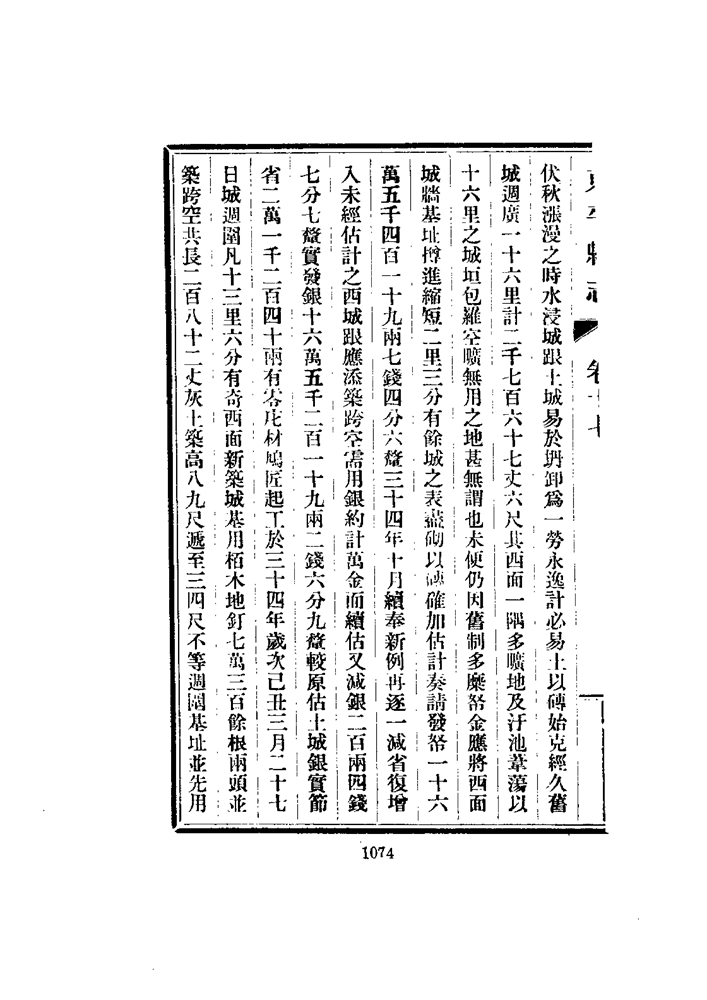 東平縣志 卷十七
伏秋漲漫之時水浸城跟土城易於坍卸爲一勞永逸計必易土以磚始克經久舊
城週廣一十六里計二千七百六十七丈六尺其西面一隅多曠地及汙池葦蕩以
十六里之城垣包羅空曠無用之地甚無謂也未便仍因舊制多糜帑金應將西面
城牆基址撙進縮短二里三分有餘城之表盡砌以磚確加估計奏請發帑一十六
萬五千四百一十九兩七錢四分六釐三十四年十月續奉新例再逐一減省復增
入未經估計之西城跟應添築跨空需用銀約計萬金而續估又減銀二百兩四錢
七分七釐實發銀十六萬五千二百一十九兩二錢六分九釐較原估土城銀實節
省二萬一千二百四十兩有零庀材鳩匠起工於三十四年歲次己丑三月二十七
日城週圍凡十三里六分有奇西面新築城基用栢木地釘七萬三百餘根兩頭並
築跨空共長二百八十二丈灰土築高八九尺遞至三四尺不等週圍基址並先用
1074